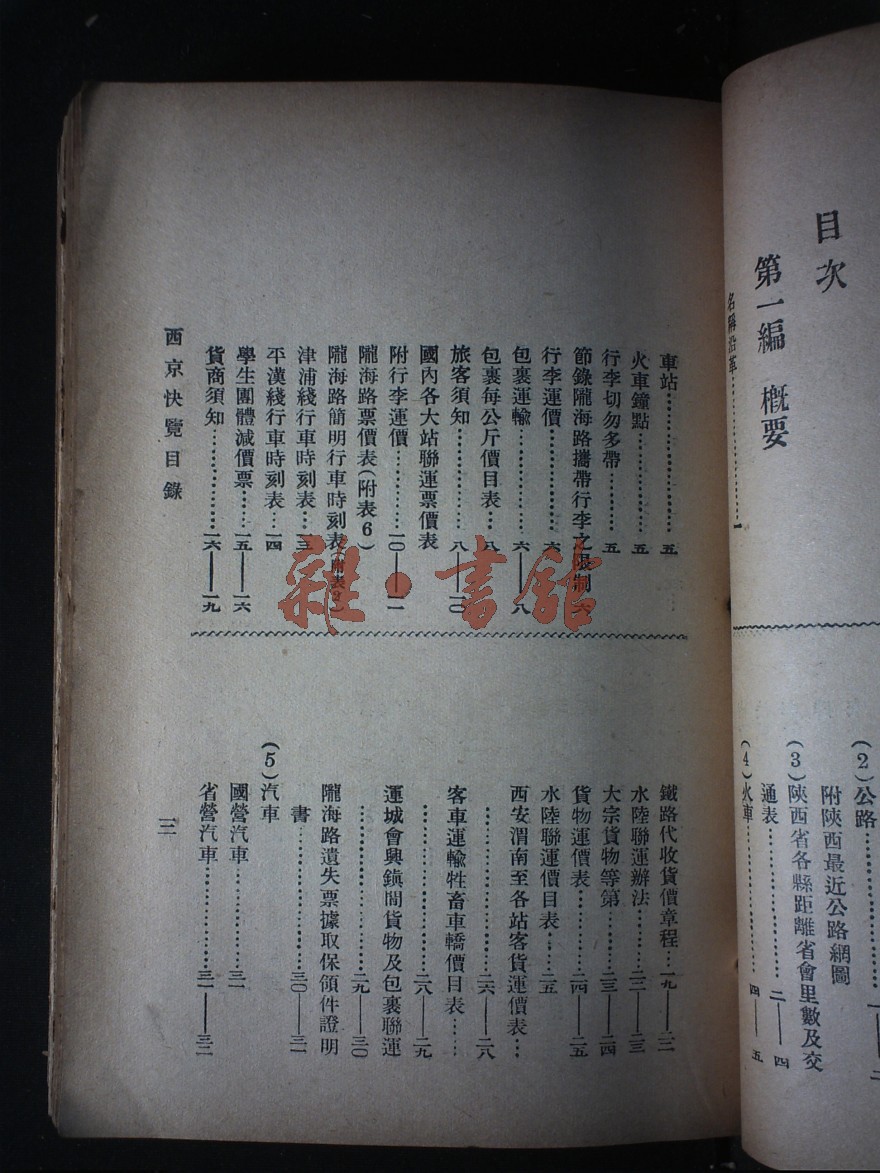 目次
第一編 概要
名稱沿革……………………一
(2)公路………………一——二
附陝西最近公路網圖
(3)陝西省各縣距離省會里數及交
通表……………二——四
(4)火車……………四——五
車站……………………五
火車鐘點………………五
行李切勿多帶…………五
節錄隴海路攜帶行李之限制六
行李運價………………六
包裹運輸…………六——八
包裹每公斤價目表……八
旅客須知…………八——一〇
國內各大站聯運票價表
附行李運價………一〇——一一
隴海路票價表(附表6)
隴海路簡明行車時刻表(附表2)
津浦綫行車時刻表…一三
平漢綫行車時刻表…一四
學生團體減價票……一五——一六
貨商須知…………一六——一九
西京快覽目錄
鐵路代收貨價章程…一九——二二
水陸聯運辦法………二二——二三
大宗貨物等第………二三——二四
貨物運價表…………二四——二五
水陸聯運價目表……二五
西安渭南至各站客貨運價表…
………………二六——二八
客車運輸牲畜車轎價目表……
………………二八——二九
運城會興鎮間貨物及包裹聯運
………………二九——三〇
隴海路遺失票據取保領件證明
書………………三〇——三一
(5)汽車
國營汽車……………三一
省營汽車……………三一——三二
三
雜·書館